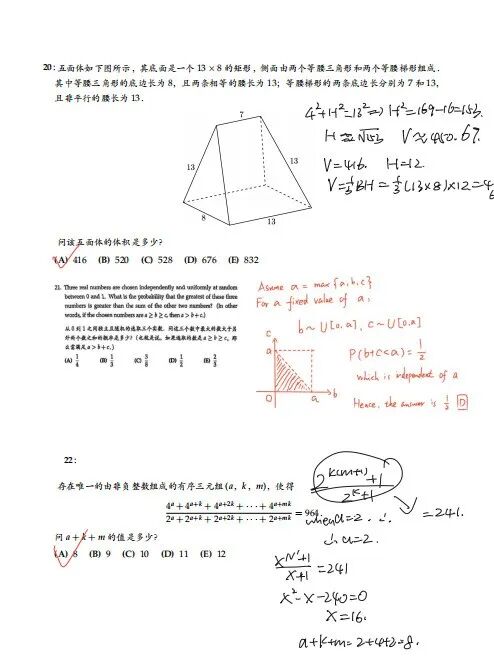 20: 五面体如下图所示，其底面是一个 13 × 8 的矩形，侧面由两个等腰三角形和两个等腰梯形组成．
其中等腰三角形的底边长为 8，且两条相等的腰长为 13；等腰梯形的两条底边长分别为 7 和 13，
且非平行的腰长为 13．
4²+H²=13² => H²=169-16=153
H≈√153 V≈450.67.
V=416. H=12
V=⅓BH=⅓(13×8)×12=416
7
13
13
13
8
13
问该五面体的体积是多少?
(A) 416 (B) 520 (C) 528 (D) 676 (E) 832
21. Three real numbers are chosen independently and uniformly at random
between 0 and 1. What is the probability that the greatest of these three
numbers is greater than the sum of the other two numbers? (In other
words, if the chosen numbers are a ≥ b ≥ c, then a > b + c.)
从 0 到 1 之间独立且随机的选取三个实数．问这三个数中最大的数大于另
外两个数之和的概率是多少?
(A) 1/4 (B) 1/3 (C) 3/8 (D) 1/2 (E) 2/3
Assume a = max{a,b,c}
For a fixed value of a,
b ~ U[0,a], c ~ U[0,a]
c
a
0 a b
P(b+c<a) = 1/2
which is independent of a
Hence, the answer is 1/2 D
22:
存在唯一的由非负整数组成的有序三元组 (a, k, m)，使得
4^a + 4^{a+k} + 4^{a+2k} + ··· + 4^{a+mk}
2^a + 2^{a+k} + 2^{a+2k} + ··· + 2^{a+mk}
= 964
问 a + k + m 的值是多少?
(A) 8 (B) 9 (C) 10 (D) 11 (E) 12
2^{k(m+1)}+1
2^k+1
=241.
when a=2.
∴ a=2.
=241
x²-x-240=0
x=16.
a+k+m=2+4+2=8.